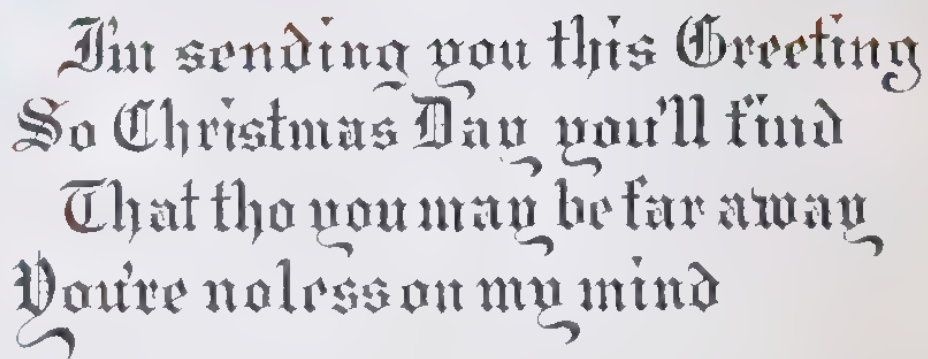 I'm sending you this Greeting
So Christmas Day you'll find
That tho you may be far away
You're no less on my mind